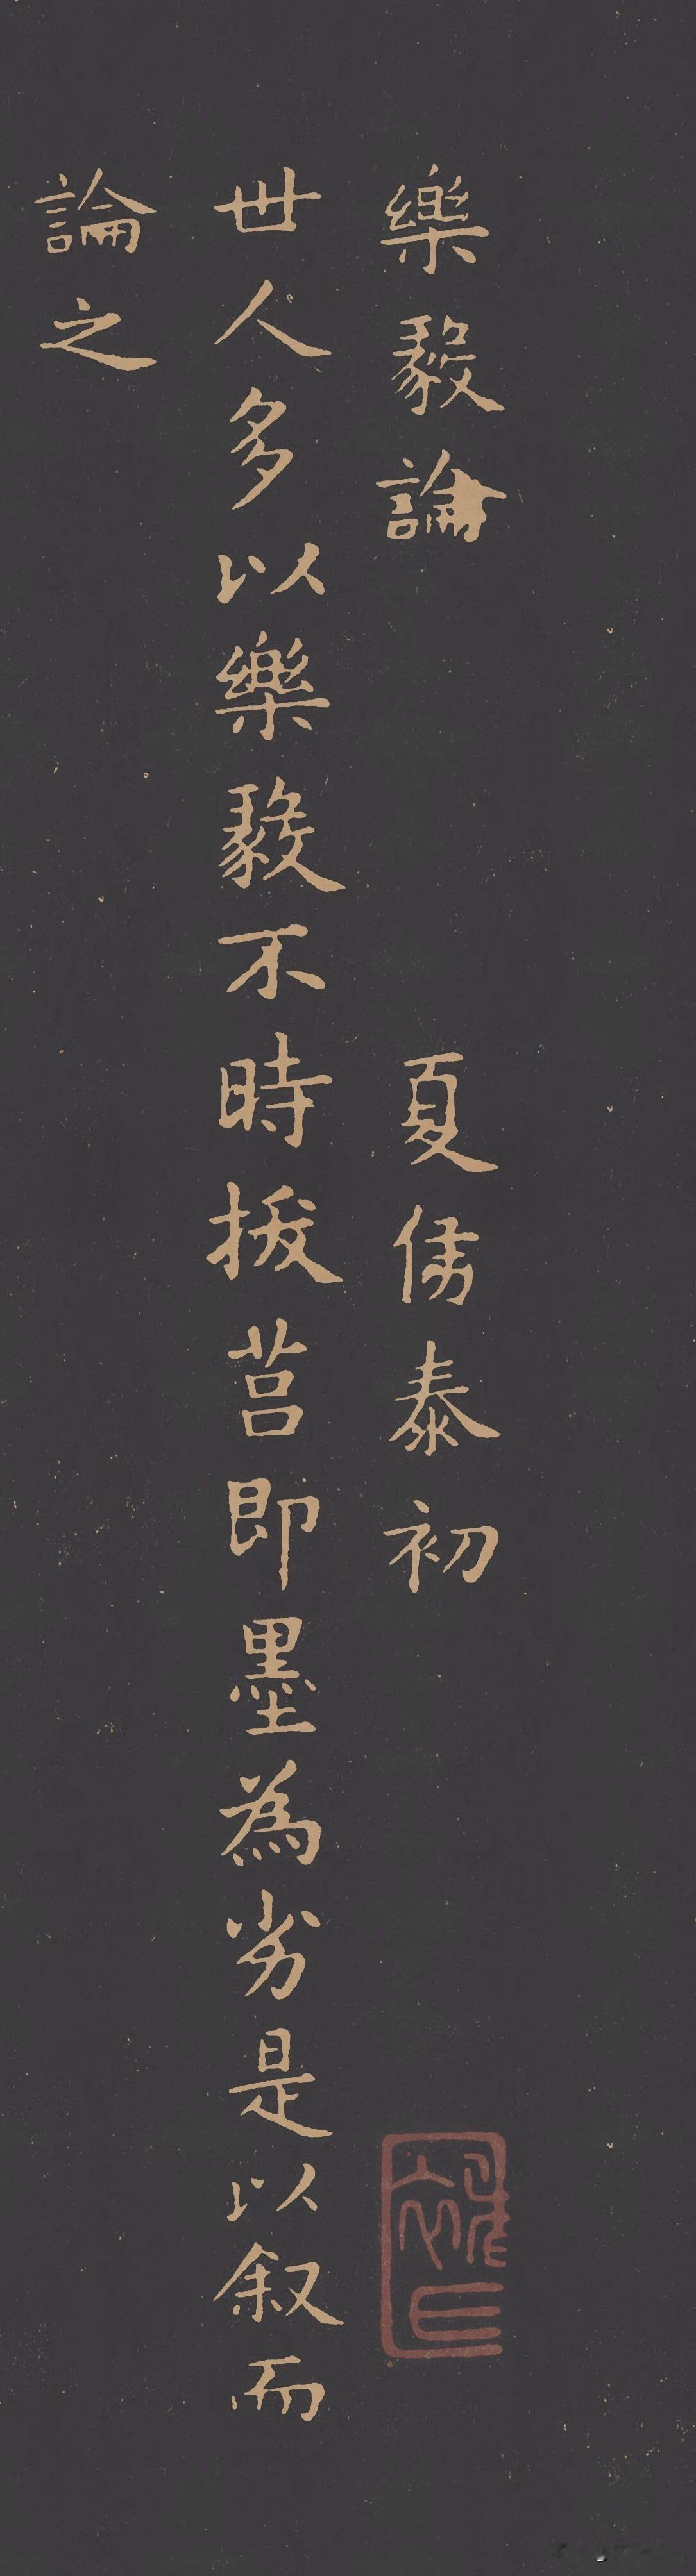 樂毅論 夏侯泰初
世人多以樂毅不時拔莒即墨為劣是以叙而
論之